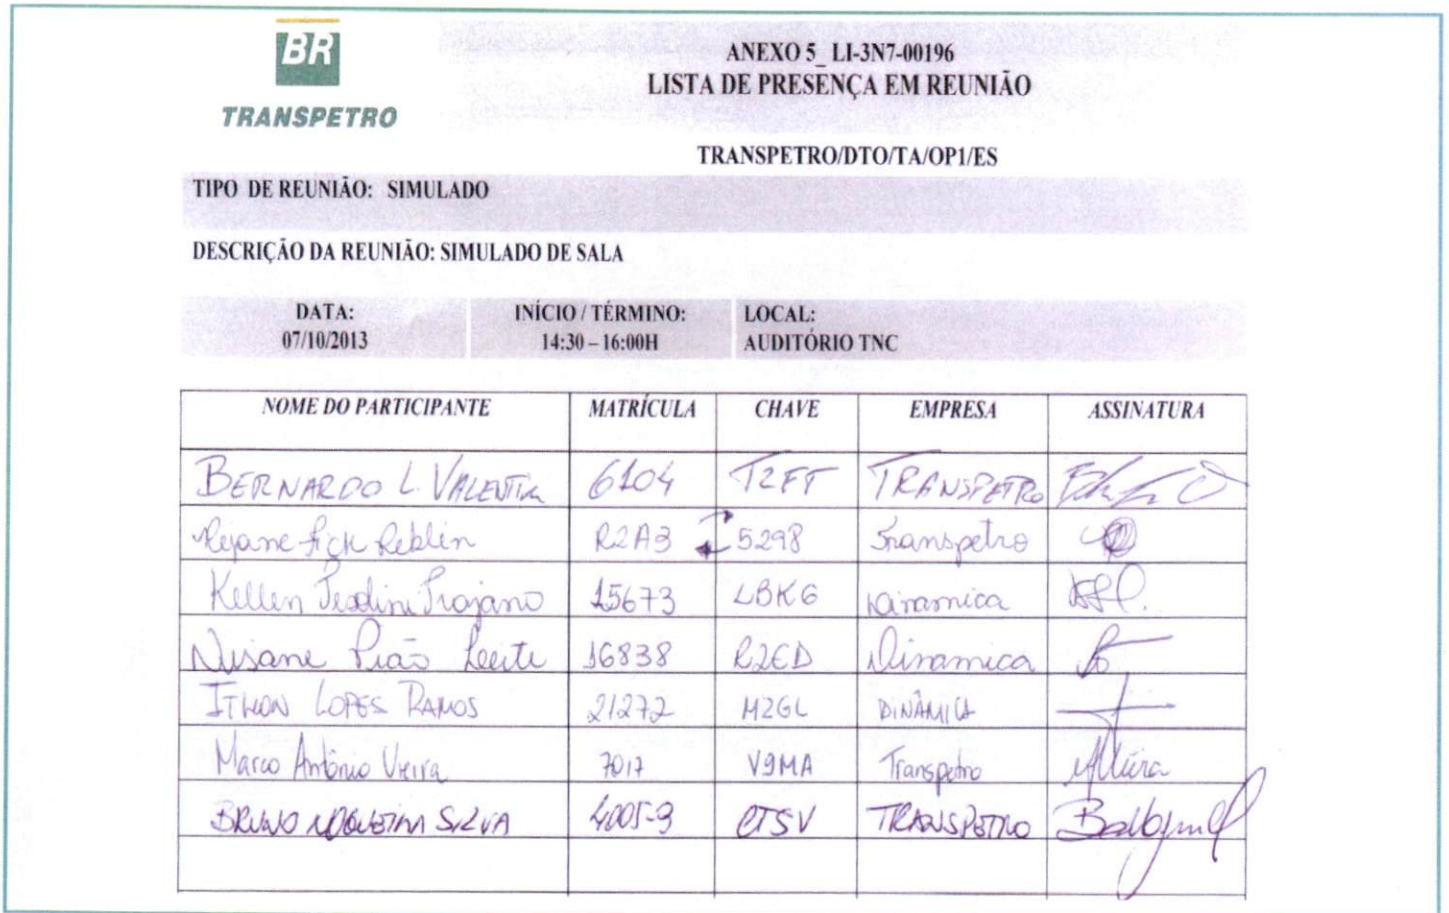 BR
TRANSPETRO
ANEXO 5_ LI-3N7-00196
LISTA DE PRESENÇA EM REUNIÃO
TRANSPETRO/DTO/TA/OP1/ES
TIPO DE REUNIÃO: SIMULADO
DESCRIÇÃO DA REUNIÃO: SIMULADO DE SALA
DATA: INÍCIO / TÉRMINO: LOCAL:
07/10/2013 14:30 – 16:00H AUDITÓRIO TNC
NOME DO PARTICIPANTE MATRÍCULA CHAVE EMPRESA ASSINATURA
BERNARDO L. VALENTIM 6104 T2FT TRANSPETRO
Rejane Fick Reblin R2A3 5298 Transpetro
Kellen Trojano 15673 LBKG Dinamica
Leite 16838 R2ED Dinamica
LOPES RAMOS 21272 M2GL DINÂMICA
Marco Antônio Vieira 7017 V9MA Transpetro
BRUNO NOGUEIRA SILVA 4005-9 CTSV TRANSPETRO